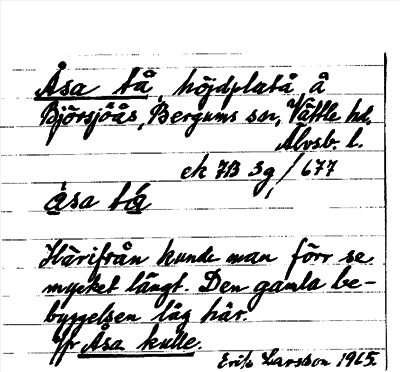 Åsa tå, höjdplatå å
Björsjöås, Bergums sn, Vättle hd.
Älvsb. l.
ek 7B 3g / 677
åsa tå
Härifrån kunde man förr se
mycket långt. Den gamla be-
byggelsen låg här.
Jfr Åsa kulle.
Erik Larsson 1965.